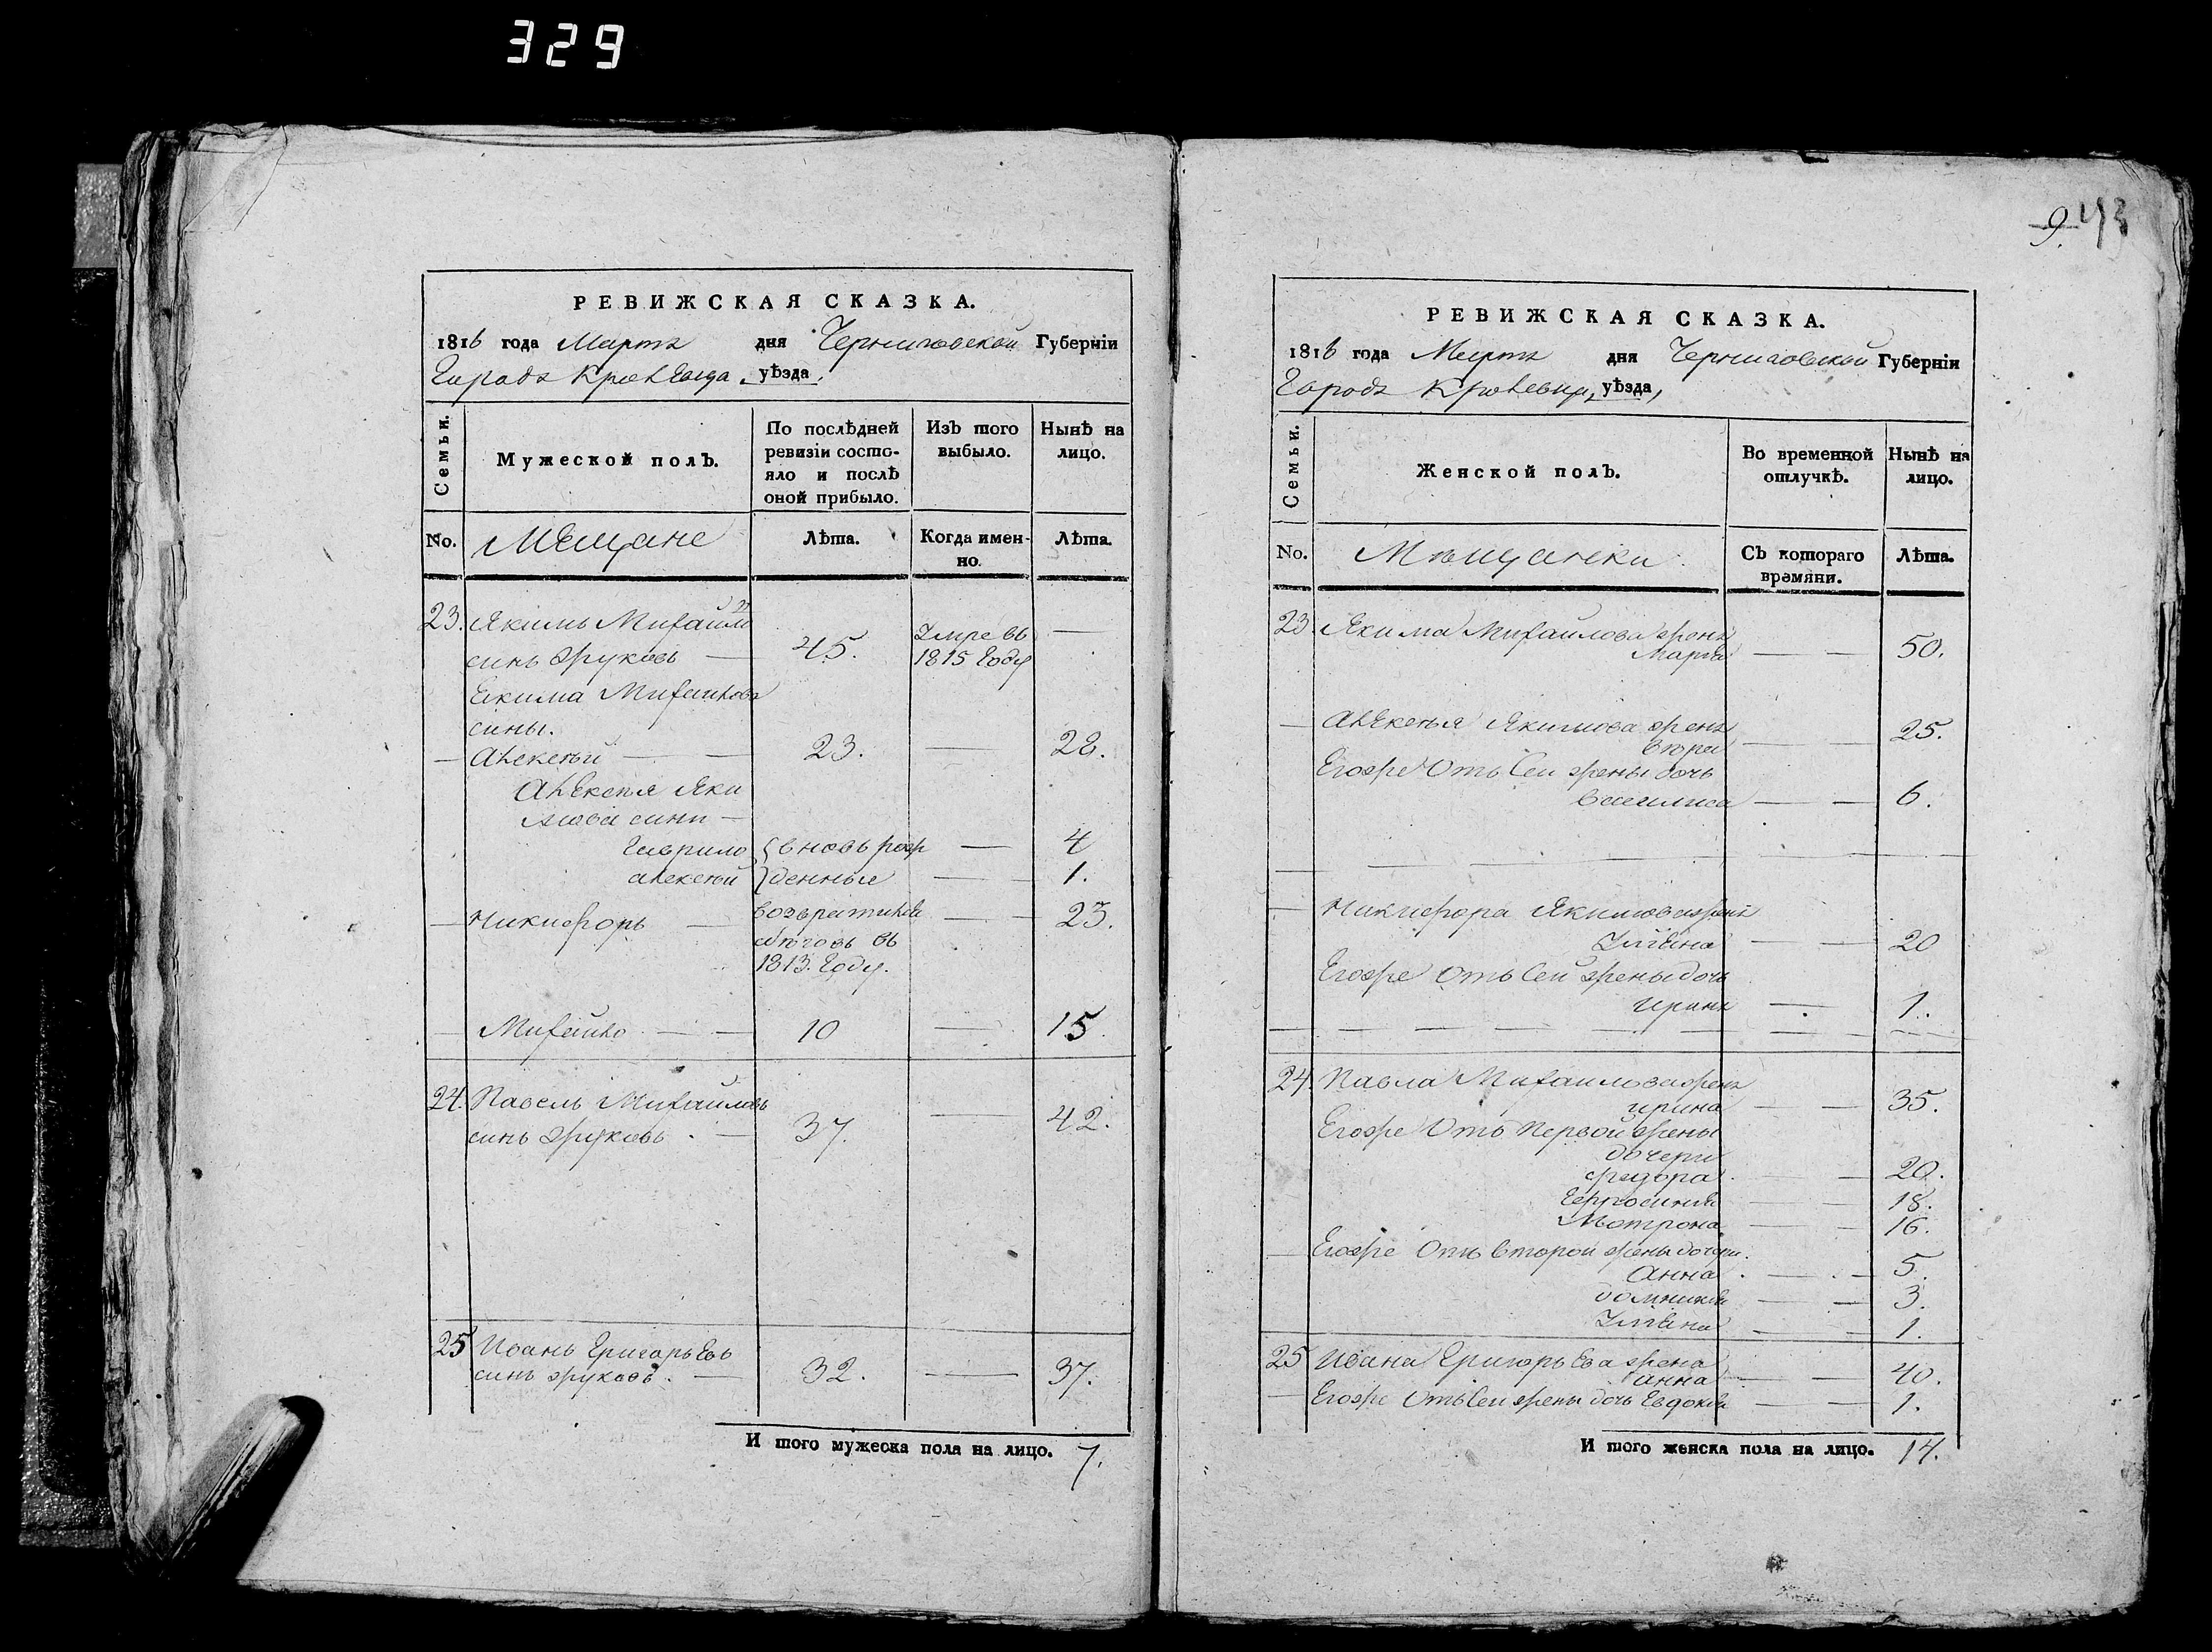 329
9. 43
РЕВИЖСКАЯ СКАЗКА.
1816 года Мартъ дня Черниговской Губерніи
Города Кролевца уѣзда.
Семьи.
Мужеской полъ.
По послѣдней ревизіи состояло и послѣ оной прибыло.
Изъ того выбыло.
Нынѣ на лицо.
No. Мещане
Лѣта.
Когда именно.
Лѣта.
23. Якимъ Михайловъ
синъ Жуковъ — 45. Умре въ 1815 Году —
Екима Михайлова
сины.
— Алексѣй — 23. — 28.
Алексѣя Яки
мова сини —
Гаврило вновь рож — 4
алексѣй денныя — 1.
— Никифоръ — возвратился — 23.
въ
1813. Году.
— Михайло — 10 — 15.
24. Павелъ Михайловъ
синъ Жуковъ. — 37. — 42.
25 Иванъ Григорьевъ
синъ Жуковъ. — 32. — 37.
И того мужеска пола на лицо. 7.
РЕВИЖСКАЯ СКАЗКА.
1816 года Мартъ дня Черниговской Губерніи
Городъ Кролевца, уѣзда,
Семьи.
Женской полъ.
Во временной отлучкѣ.
Нынѣ на лицо.
No. Мѣщанки
Съ котораго времяни.
Лѣта.
23. Якима Михайлова жена
Марфа — — 50.
— Алексѣя Якимова жена
— — 25.
Егоже Отъ Сей жены дочь
Василиса — — 6.
— Никифора Якимова жена
Улияна — — 20
Егоже Отъ Сей жены дочь
Ирина — 1.
24. Павла Михайлова жена
ирина — — 35.
Егоже Отъ Первой жены
дочери
Федора — 20.
Ефросиния — — 18.
Мотрона — — 16.
— Егоже Отъ Второй жены дочери.
Анна — — 5.
домникия — — 3.
Улияна — — 1.
25 Ивана Григорьева жена
анна — — 40.
— Егоже Отъ Сей жены дочь Евдокия — — 1.
И того женска пола на лицо. 14.